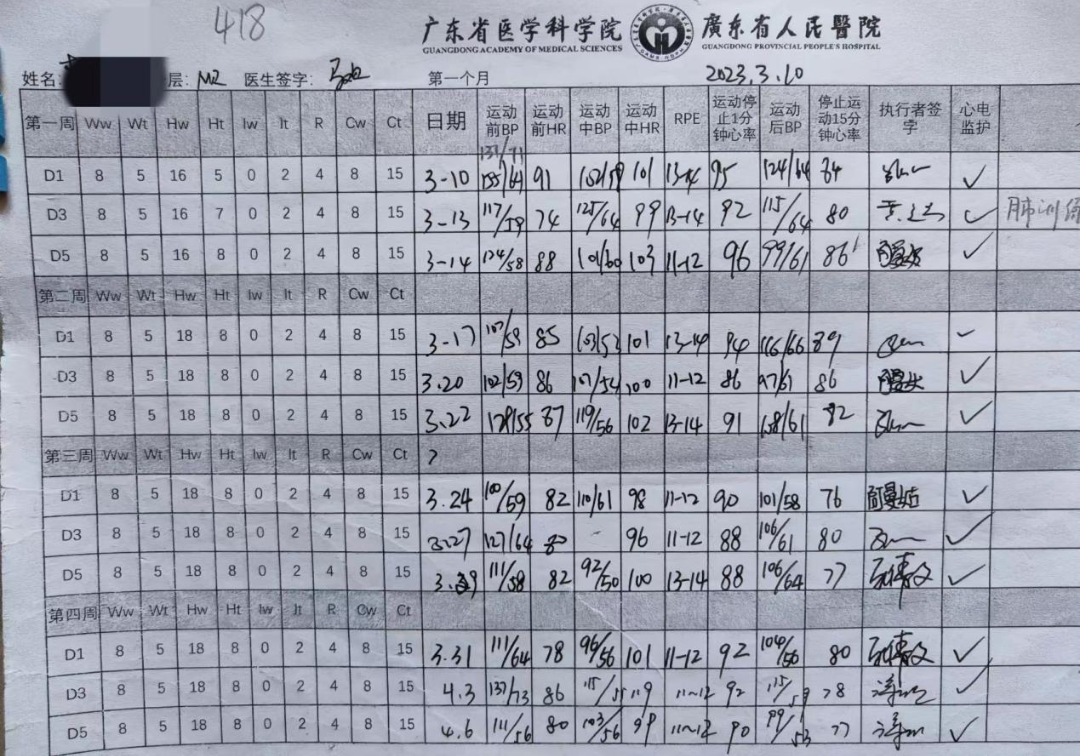 418
广东省医学科学院 廣东省人民醫院
GUANGDONG ACADEMY OF MEDICAL SCIENCES GUANGDONG PROVINCIAL PEOPLE'S HOSPITAL
姓名: 层: 医生签字: 第一个月 2023.3.10
第一周 Ww Wt Hw Ht Iw It R Cw Ct 日期 运动前BP 运动前HR 运动中BP 运动中HR RPE 运动停止1分钟心率 运动后BP 停止运动15分钟心率 执行者签字 心电监护
D1 8 5 16 5 0 2 4 8 15 3-10 91 101 13-14 95 124/64 84 ✓
D3 8 5 16 7 0 2 4 8 15 3-13 117/59 74 125/64 99 13-14 92 115/64 80 ✓
D5 8 5 16 8 0 2 4 8 15 3-14 88 101/60 103 11-12 96 99/61 86 ✓
第二周 Ww Wt Hw Ht Iw It R Cw Ct
D1 8 5 18 8 0 2 4 8 15 3-17 107/59 85 101 13-14 94 116/66 89
D3 8 5 18 8 0 2 4 8 15 3.20 102/59 86 107/54 100 11-12 86 86 ✓
D5 8 5 18 8 0 2 4 8 15 3.22 119/56 102 13-14 91 82 ✓
第三周 Ww Wt Hw Ht Iw It R Cw Ct
D1 8 5 18 8 0 2 4 8 15 3.24 100/59 82 110/61 98 11-12 90 101/58 76 ✓
D3 8 5 18 8 0 2 4 8 15 3.27 127/64 80 - 96 11-12 88 106/61 80 ✓
D5 8 5 18 8 0 2 4 8 15 111/58 82 92/50 100 13-14 88 106/64 77 ✓
第四周 Ww Wt Hw Ht Iw It R Cw Ct
D1 8 5 18 8 0 2 4 8 15 3.31 111/64 78 96/56 101 11-12 92 104/56 80 ✓
D3 8 5 18 8 0 2 4 8 15 4.3 137/73 86 115/55 119 11-12 92 115/59 78 ✓
D5 8 5 18 8 0 2 4 8 15 4.6 111/56 80 103/56 99 11-12 90 99/53 77 ✓